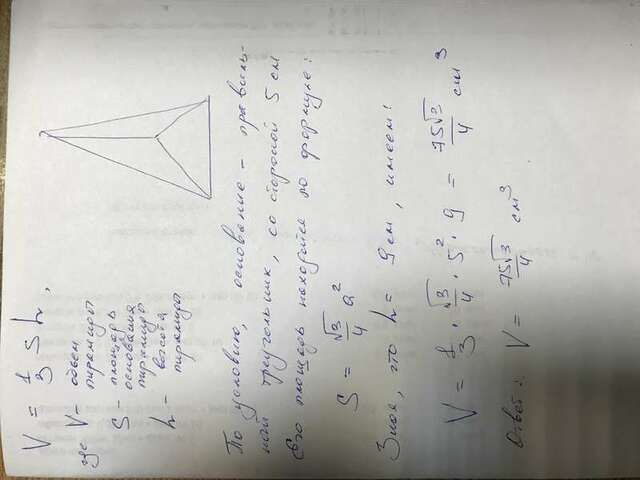 V = 1/3 S h,
где V - объем
пирамиды
S - площадь
основания
пирамиды
h - высота
пирамиды
По условию, основание - правиль-
ный треугольник, со стороной 5 см
Его площадь находится по формуле:
S = √3/4 a²
Зная, что h = 9 см, имеем:
V = 1/3 · √3/4 · 5² · 9 = 75√3/4 см³
Ответ: V = 75√3/4 см³